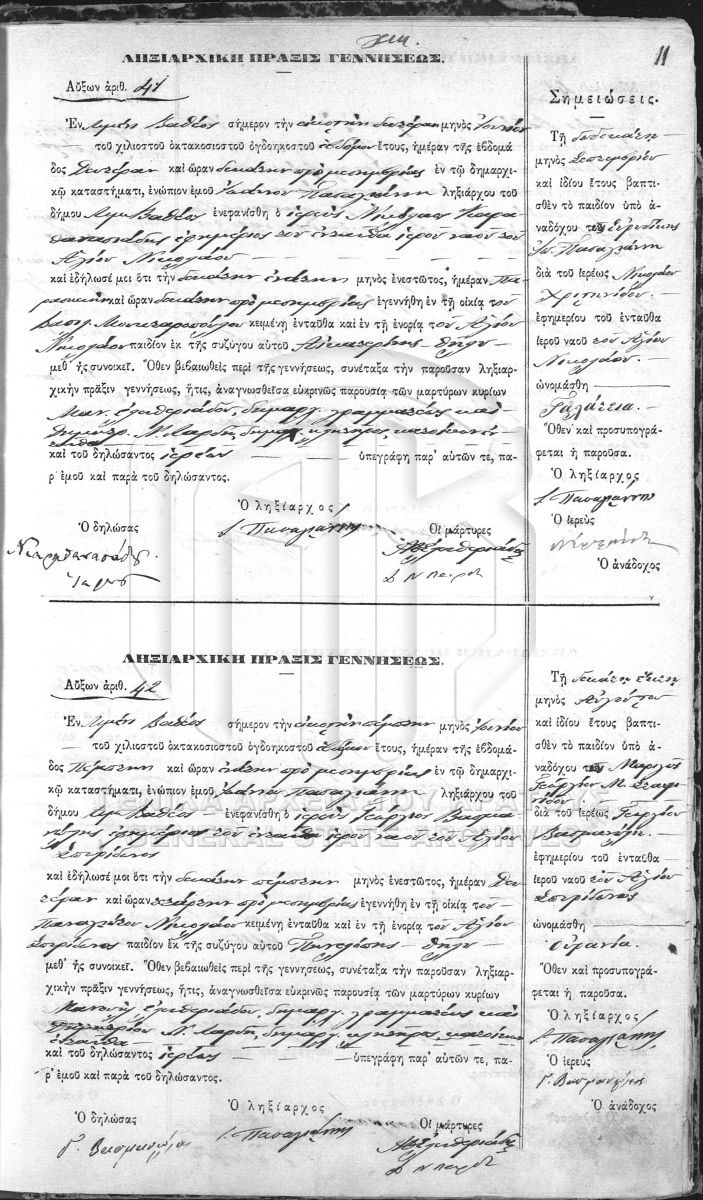 11
ΛΗΞΙΑΡΧΙΚΗ ΠΡΑΞΙΣ ΓΕΝΝΗΣΕΩΣ.
Αὔξων ἀριθ. 41
Ἐν Λιμένι Βαθέος σήμερον τὴν εἰκοστὴν δευτέραν μηνὸς Ἰουνίου
τοῦ χιλιοστοῦ ὀκτακοσιοστοῦ ὀγδοηκοστοῦ ἑβδόμου ἔτους, ἡμέραν τῆς ἑβδομά
δος Δευτέραν καὶ ὥραν δεκάτην πρὸ μεσημβρίας ἐν τῷ δημαρχι-
κῷ καταστήματι, ἐνώπιον ἐμοῦ Ἰωάννου Πασαγιάννη ληξιάρχου τοῦ
δήμου Λιμ. Βαθέος ἐνεφανίσθη ὁ ἱερεὺς Νικόλαος Καρα
θανασιάδης ἐφημέριος τοῦ ἐνταῦθα ἱεροῦ ναοῦ τοῦ
Ἁγίου Νικολάου
καὶ ἐδήλωσέ μοι ὅτι τὴν δεκάτην ἐνάτην μηνὸς ἐνεστῶτος, ἡμέραν Πα
ρασκευὴν καὶ ὥραν δεκάτην πρὸ μεσημβρίας ἐγεννήθη ἐν τῇ οἰκίᾳ τοῦ
Βασιλ. κειμένῃ ἐνταῦθα καὶ ἐν τῇ ἐνορίᾳ τοῦ Ἁγίου
Νικολάου παιδίον ἐκ τῆς συζύγου αὐτοῦ Αἰκατερίνης θῆλυ
μεθ' ἧς συνοικεῖ. Ὅθεν βεβαιωθεὶς περὶ τῆς γεννήσεως, συνέταξα τὴν παροῦσαν ληξιαρ-
χικὴν πρᾶξιν γεννήσεως, ἥτις, ἀναγνωσθεῖσα εὐκρινῶς παρουσίᾳ τῶν μαρτύρων κυρίων
Μαν. Ἐλευθεριάδου, δημαρχ. γραμματέως καὶ
Δημητρ. Ν. δημαρχ. κλητῆρος, κατοίκων
ἐνταῦθα
καὶ τοῦ δηλώσαντος ἱερέως ὑπεγράφη παρ' αὐτῶν τε, πα-
ρ' ἐμοῦ καὶ παρὰ τοῦ δηλώσαντος.
Ὁ ληξίαρχος
Ὁ δηλώσας Ι. Πασαγιάννης Οἱ μάρτυρες
Ν. Καραθανασιάδης
ἱερεὺς
Μ Ἐλευθεριάδης
Δ Ν
Σημειώσεις.
Τῇ δωδεκάτῃ
μηνὸς Σεπτεμβρίου
καὶ ἰδίου ἔτους βαπτι-
σθὲν τὸ παιδίον ὑπὸ ἀ-
ναδόχου τῆς Εὐρυδίκης
Ἰω. Πασαγιάννη
διὰ τοῦ ἱερέως Νικολάου
ἐφημερίου τοῦ ἐνταῦθα
ἱεροῦ ναοῦ τοῦ Ἁγίου
Νικολάου.
ὠνομάσθη
Γαλάτεια.
Ὅθεν καὶ προσυπογρά-
φεται ἡ παροῦσα.
Ὁ ληξίαρχος
Ι. Πασαγιάννης
Ὁ ἱερεὺς
Ὁ ἀνάδοχος
ΛΗΞΙΑΡΧΙΚΗ ΠΡΑΞΙΣ ΓΕΝΝΗΣΕΩΣ.
Αὔξων ἀριθ. 42
Ἐν Λιμένι Βαθέος σήμερον τὴν εἰκοστὴν πέμπτην μηνὸς Ἰουνίου
τοῦ χιλιοστοῦ ὀκτακοσιοστοῦ ὀγδοηκοστοῦ ἑβδόμου ἔτους, ἡμέραν τῆς ἑβδομά-
δος Πέμπτην καὶ ὥραν ἐνάτην πρὸ μεσημβρίας ἐν τῷ δημαρχι-
κῷ καταστήματι, ἐνώπιον ἐμοῦ Ἰωάννου Πασαγιάννη ληξιάρχου τοῦ
δήμου Λιμ. Βαθέος ἐνεφανίσθη ὁ ἱερεὺς Γεώργιος
ἐφημέριος τοῦ ἐνταῦθα ἱεροῦ ναοῦ τοῦ Ἁγίου
Σπυρίδωνος
καὶ ἐδήλωσέ μοι ὅτι τὴν δεκάτην πέμπτην μηνὸς ἐνεστῶτος, ἡμέραν Δευ
τέραν καὶ ὥραν τετάρτην πρὸ μεσημβρίας ἐγεννήθη ἐν τῇ οἰκίᾳ τοῦ
Παναγιώτου Νικολάου κειμένῃ ἐνταῦθα καὶ ἐν τῇ ἐνορίᾳ τοῦ Ἁγίου
Σπυρίδωνος παιδίον ἐκ τῆς συζύγου αὐτοῦ θῆλυ
μεθ' ἧς συνοικεῖ. Ὅθεν βεβαιωθεὶς περὶ τῆς γεννήσεως, συνέταξα τὴν παροῦσαν ληξιαρ-
χικὴν πρᾶξιν γεννήσεως, ἥτις, ἀναγνωσθεῖσα εὐκρινῶς παρουσίᾳ τῶν μαρτύρων κυρίων
Μανουὴλ Ἐλευθεριάδου, δημαρχ. γραμματέως καὶ
Δημητρίου Ν. δημαρχ. κλητῆρος, κατοίκων
ἐνταῦθα
καὶ τοῦ δηλώσαντος ἱερέως ὑπεγράφη παρ' αὐτῶν τε, πα-
ρ' ἐμοῦ καὶ παρὰ τοῦ δηλώσαντος.
Ὁ ληξίαρχος
Ὁ δηλώσας Ι. Πασαγιάννης Οἱ μάρτυρες
Γ.
Μ Ἐλευθεριάδης
Δ Ν
Τῇ δεκάτῃ ἕκτῃ
μηνὸς Αὐγούστου
καὶ ἰδίου ἔτους βαπτι-
σθὲν τὸ παιδίον ὑπὸ ἀ-
ναδόχου
Γεωργίου Μ.
διὰ τοῦ ἱερέως Γεωργίου
ἐφημερίου τοῦ ἐνταῦθα
ἱεροῦ ναοῦ τοῦ Ἁγίου
Σπυρίδωνος
ὠνομάσθη
Οὐρανία.
Ὅθεν καὶ προσυπογρά-
φεται ἡ παροῦσα.
Ὁ ληξίαρχος
Ι. Πασαγιάννης
Ὁ ἱερεὺς
Γ.
Ὁ ἀνάδοχος
ΓΕΝΙΚΑ ΑΡΧΕΙΑ ΤΟΥ ΚΡΑΤΟΥΣ
GENERAL STATE ARCHIVES